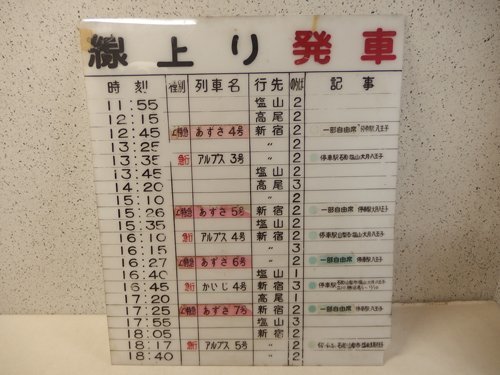 線上り発車
時刻 種別 列車名 行先 のりば 記事
11:55 塩山 2
12:15 高尾 2
12:45 L特急 あずさ4号 新宿 2 一部自由席 停車駅 八王子
13:25 〃 2
13:35 急行 アルプス3号 〃 2 停車駅 石和 塩山 大月 八王子
13:45 塩山 2
14:20 高尾 3
15:10 〃 2
15:26 L特急 あずさ5号 新宿 2 一部自由席 停車駅 大月 八王子
15:35 塩山 2
16:10 急行 アルプス4号 新宿 2 停車駅 山梨市 塩山 大月 八王子
16:15 〃 3
16:27 L特急 あずさ6号 〃 2 一部自由席 停車駅 八王子
16:40 塩山 1
16:45 急行 かいじ4号 新宿 3 停車駅
17:20 高尾 1
17:25 L特急 あずさ7号 新宿 2 一部自由席 停車駅 八王子
17:55 塩山 3
18:05 新宿 2
18:17 急行 アルプス5号 〃 2
18:40 〃 2